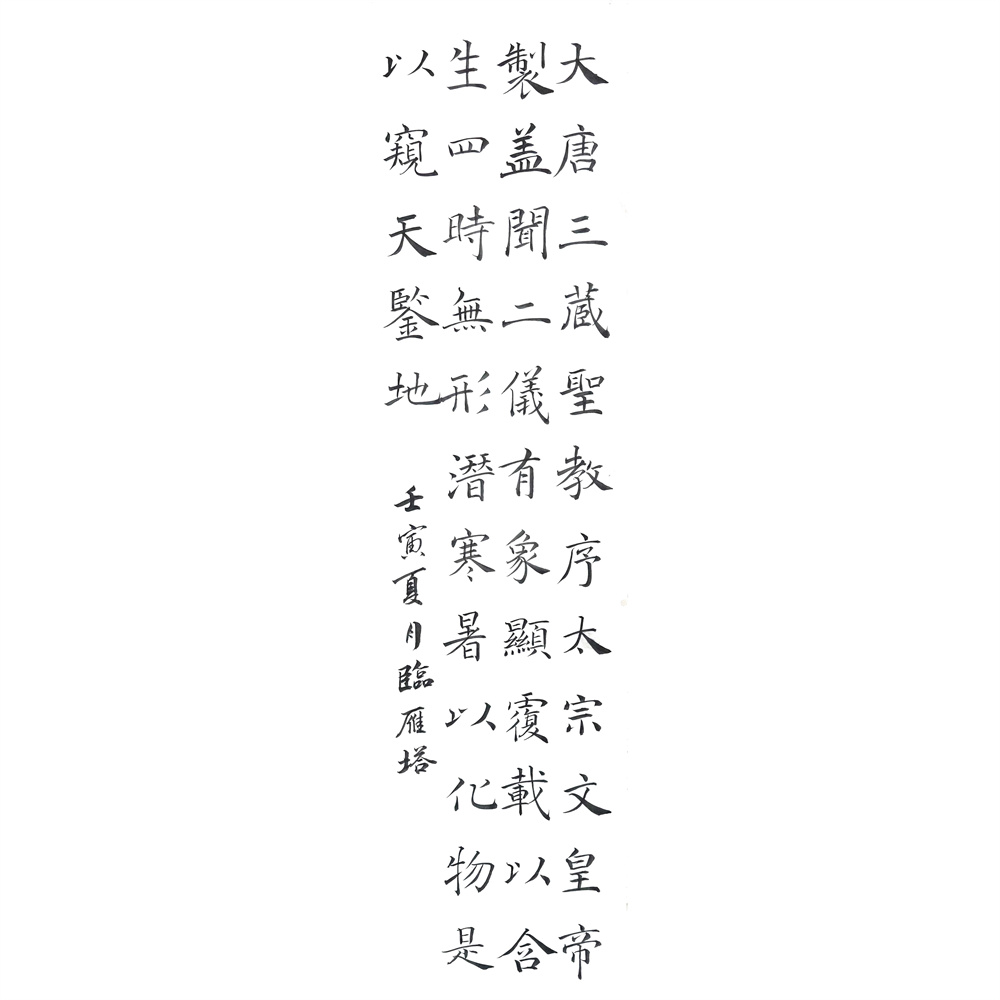 大唐三蔵聖教序太宗文皇帝
製盖聞二儀有象顯覆載以含
生四時無形潛寒暑以化物是
以窺天鑒地
壬寅夏月臨雁塔